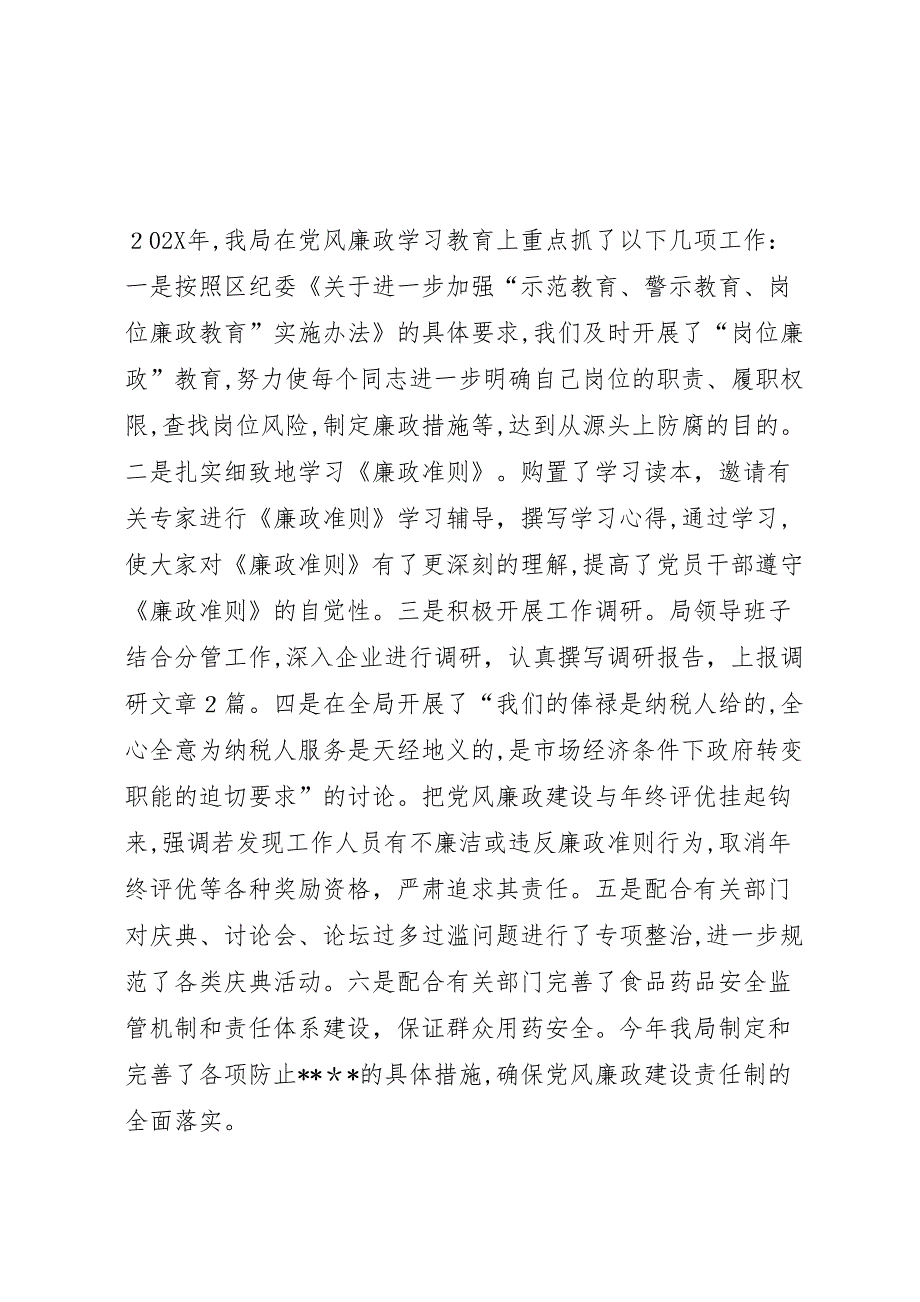 ２02X年,我局在党风廉政学习教育上重点抓了以下几项工作：
一是按照区纪委《关于进一步加强“示范教育、警示教育、岗
位廉政教育”实施办法》的具体要求,我们及时开展了“岗位廉
政”教育,努力使每个同志进一步明确自己岗位的职责、履职权
限,查找岗位风险,制定廉政措施等,达到从源头上防腐的目的。
二是扎实细致地学习《廉政准则》。购置了学习读本，邀请有
关专家进行《廉政准则》学习辅导，撰写学习心得,通过学习,
使大家对《廉政准则》有了更深刻的理解,提高了党员干部遵守
《廉政准则》的自觉性。三是积极开展工作调研。局领导班子
结合分管工作,深入企业进行调研，认真撰写调研报告，上报调
研文章２篇。四是在全局开展了“我们的俸禄是纳税人给的,全
心全意为纳税人服务是天经地义的,是市场经济条件下政府转变
职能的迫切要求”的讨论。把党风廉政建设与年终评优挂起钩
来,强调若发现工作人员有不廉洁或违反廉政准则行为,取消年
终评优等各种奖励资格，严肃追求其责任。五是配合有关部门
对庆典、讨论会、论坛过多过滥问题进行了专项整治,进一步规
范了各类庆典活动。六是配合有关部门完善了食品药品安全监
管机制和责任体系建设，保证群众用药安全。今年我局制定和
完善了各项防止**＊*的具体措施,确保党风廉政建设责任制的
全面落实。